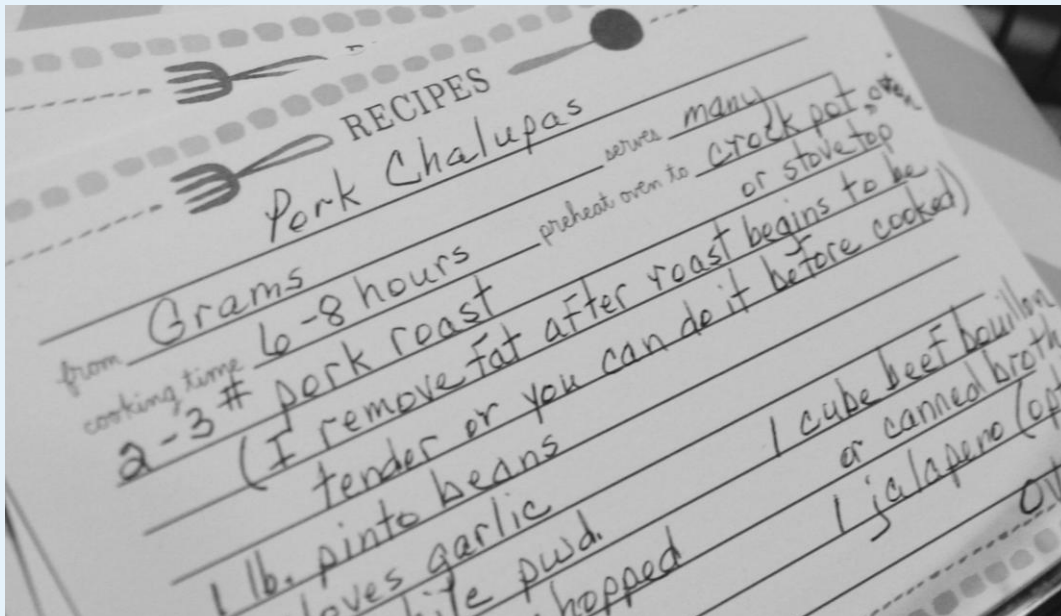 RECIPES
Pork Chalupas
from Grams serves many
cooking time 6-8 hours preheat oven to crock pot, oven
or stove top
2-3# pork roast
(I remove fat after roast begins to be
tender or you can do it before cooked)
1 lb. pinto beans 1 cube beef bouillon
garlic or canned broth
pwd. 1 jalapeno